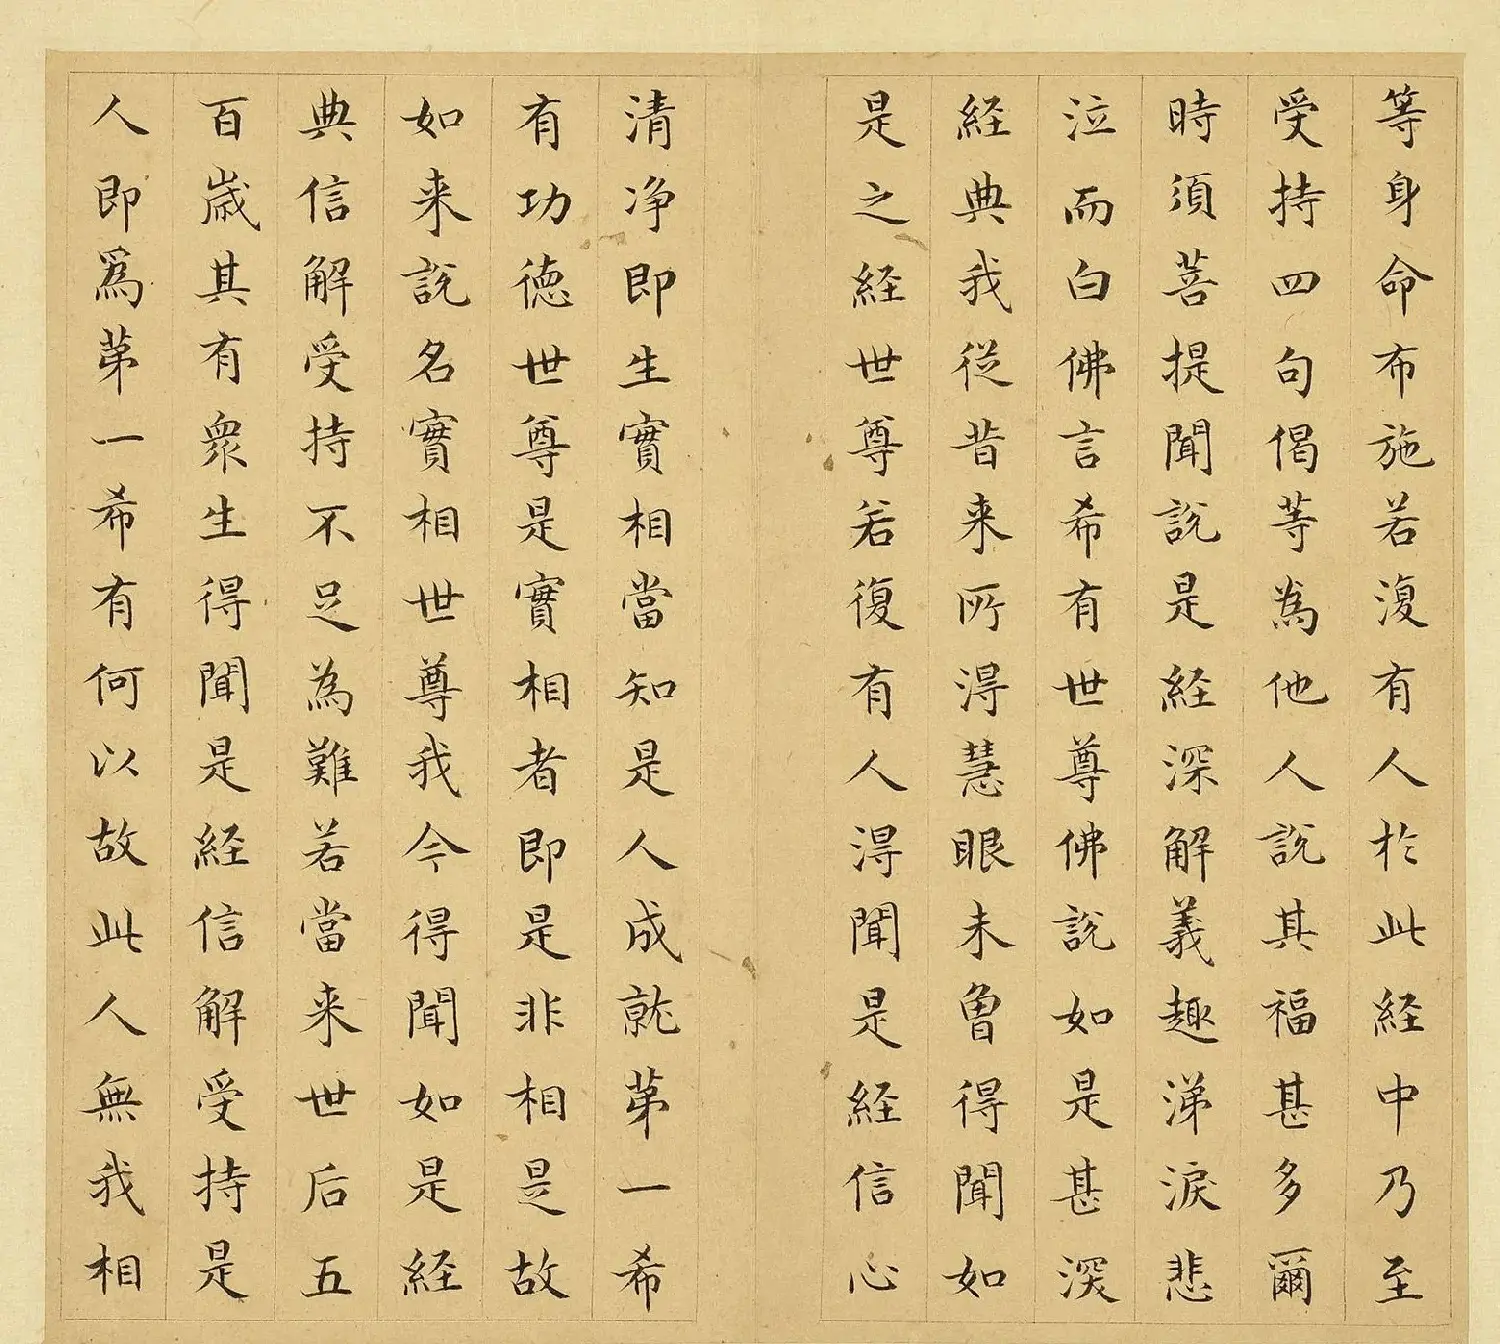 等身命布施若復有人於此経中乃至
受持四句偈等為他人說其福甚多爾
時須菩提聞說是経深解義趣涕淚悲
泣而白佛言希有世尊佛說如是甚深
経典我従昔来所得慧眼未曾得聞如
是之経世尊若復有人得聞是経信心
清净即生實相當知是人成就苐一希
有功徳世尊是實相者即是非相是故
如来說名實相世尊我今得聞如是経
典信解受持不足為難若當来世后五
百歲其有衆生得聞是経信解受持是
人即爲苐一希有何以故此人無我相